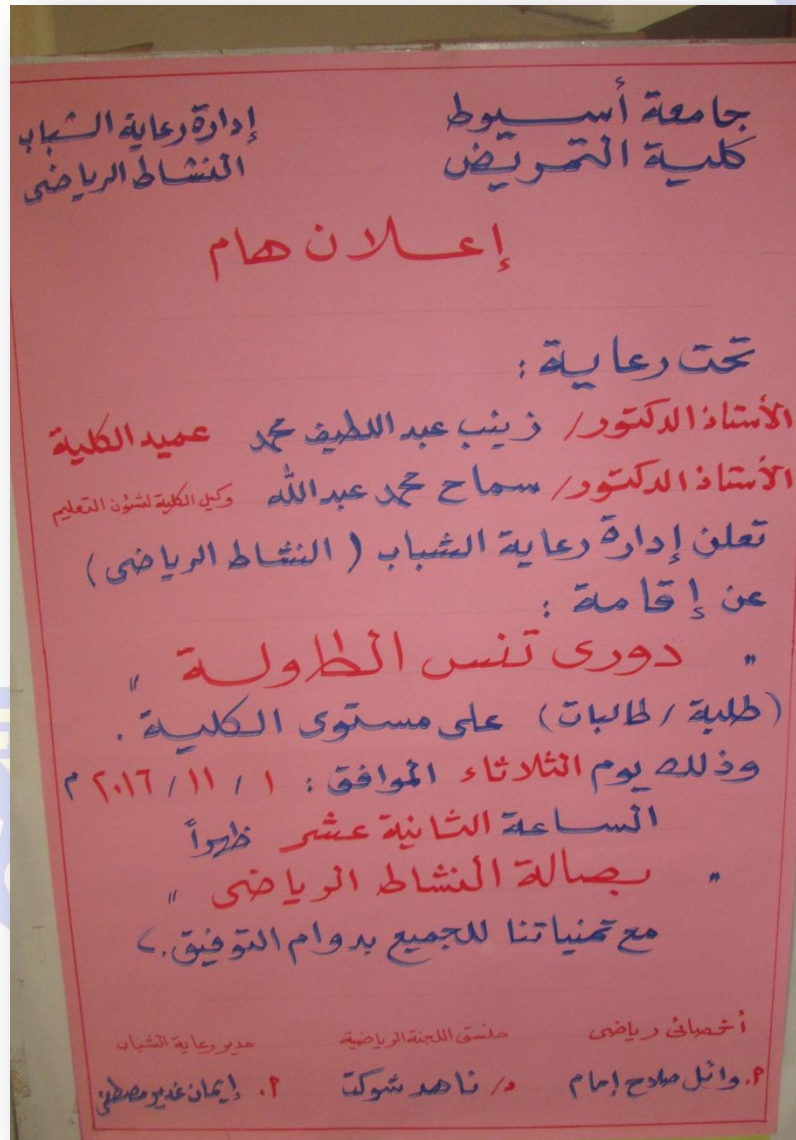 جامعة أسيوط
كلية التمريض
إدارة رعاية الشباب
النشاط الرياضى
إعلان هام
تحت رعاية :
الأستاذ الدكتور / زينب عبد اللطيف محمد عميد الكلية
الأستاذ الدكتور / سماح محمد عبدالله وكيل الكلية لشؤن التعليم
تعلن إدارة رعاية الشباب ( النشاط الرياضى )
عن إقامة :
" دورى تنس الطاولة "
(طلبة / طالبات) على مستوى الكلية .
وذلك يوم الثلاثاء الموافق : ١ / ١١ / ٢٠١٦ م
الساعة الثانية عشر ظهراً
" بصالة النشاط الرياضى "
مع تمنياتنا للجميع بدوام التوفيق .
أخصائى رياضى منسق اللجنة الرياضية مدير رعاية الشباب
٩. وائل صلاح إمام د/ ناهد شوكت ٩. إيمان غديو مصطفى